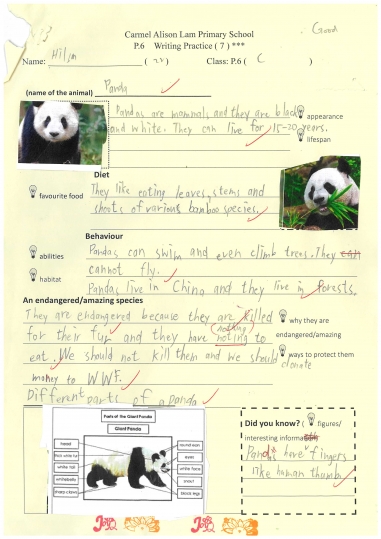 Good
Carmel Alison Lam Primary School
P.6 Writing Practice ( 7 ) ***
Name: Hilm ( 22 ) Class: P.6 ( C )
(name of the animal) Panda
Pandas are mammals and they are black appearance
and white. They can live for 15-20 years.
lifespan
Diet
favourite food They like eating leaves, stems and
shoots of various bamboo species.
Behaviour
abilities Pandas can swim and even climb trees. They can
habitat cannot fly.
Pandas live in China and they live in forests.
An endangered/amazing species
They are endangered because they are killed why they are
nothing
for their fur and they have noting to endangered/amazing
eat. We should not kill them and we should ways to protect them
donate
money to WWF.
Different parts of a panda
Parts of the Giant Panda
Giant Panda
head
round ears
thick white fur
eyes
white tail
white face
white belly
snout
sharp claws
black legs
Did you know? ( figures/
interesting information
Pandas have fingers
like human thumb